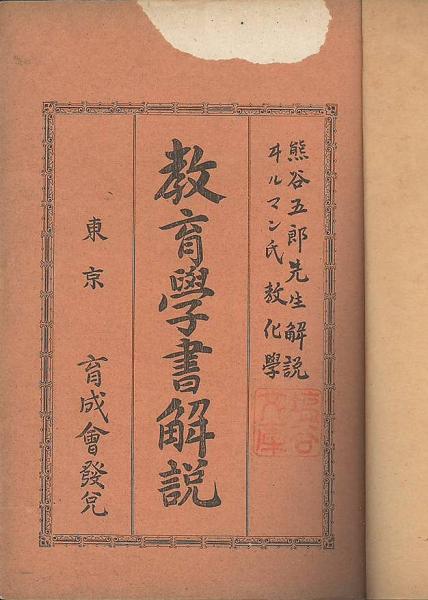 熊谷五郎先生解説
ヰルマン氏教化學
教育學書解説
東京 育成會發兌